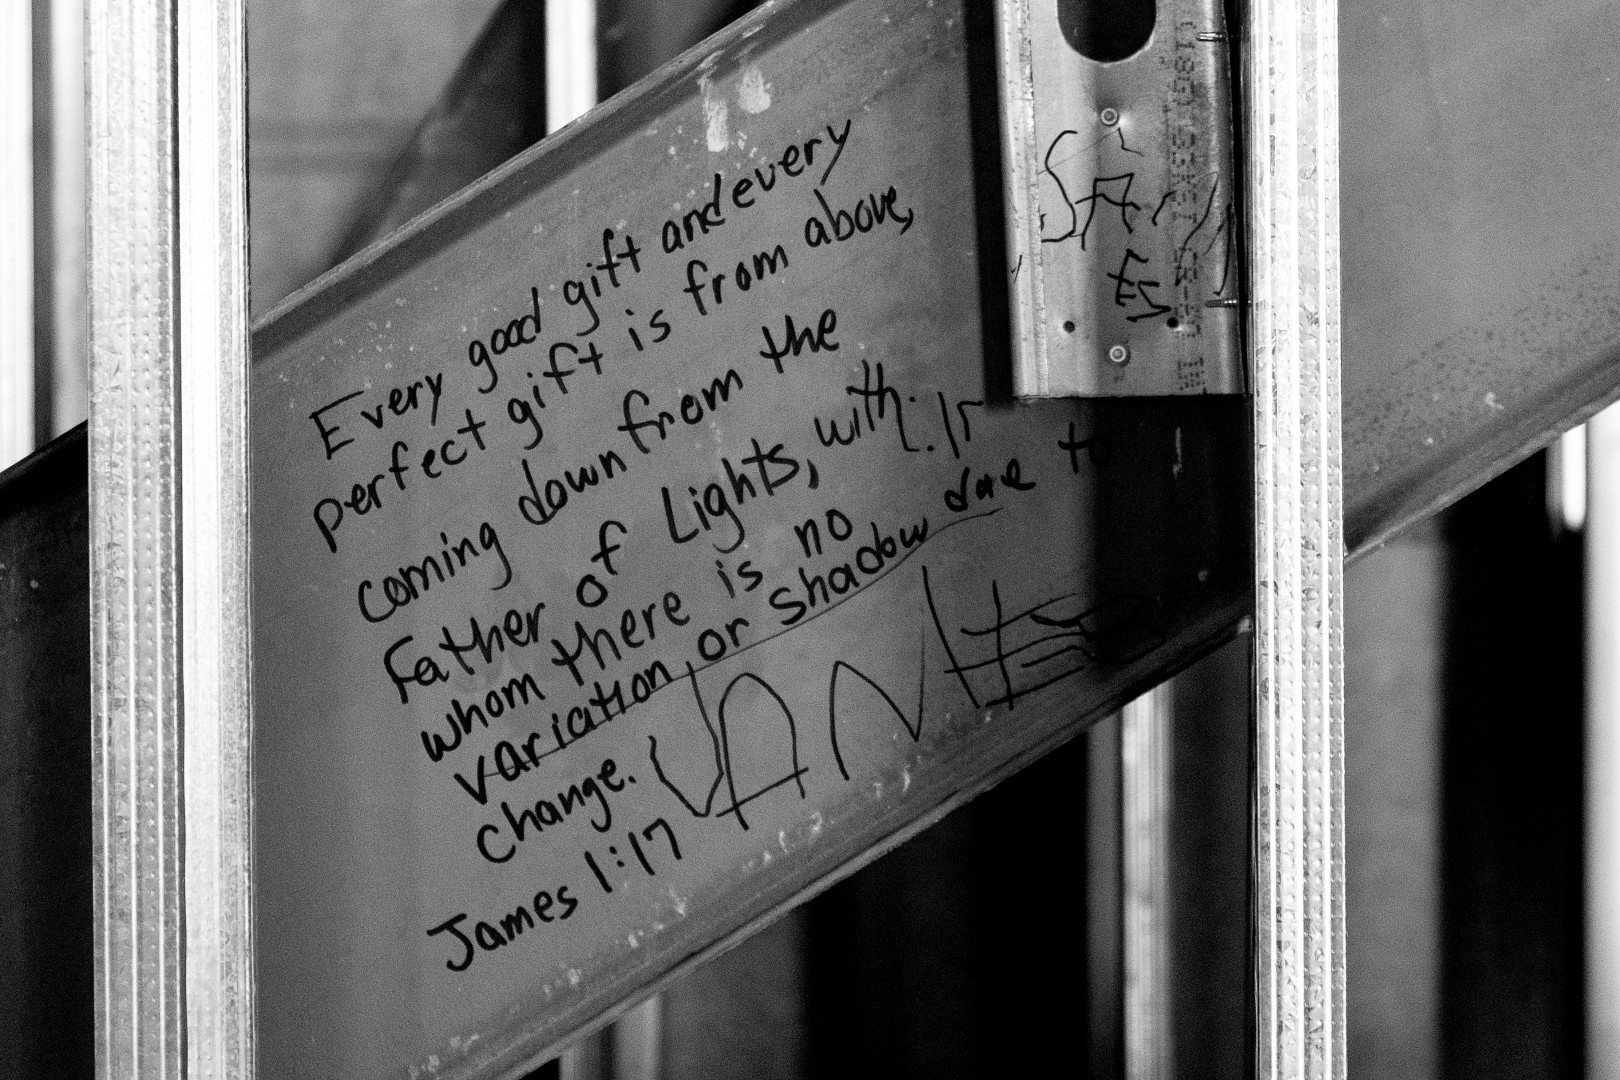 Every good gift and every
perfect gift is from above,
coming down from the
Father of Lights, with
whom there is no
variation or shadow due to
change.
James 1:17
JAMES